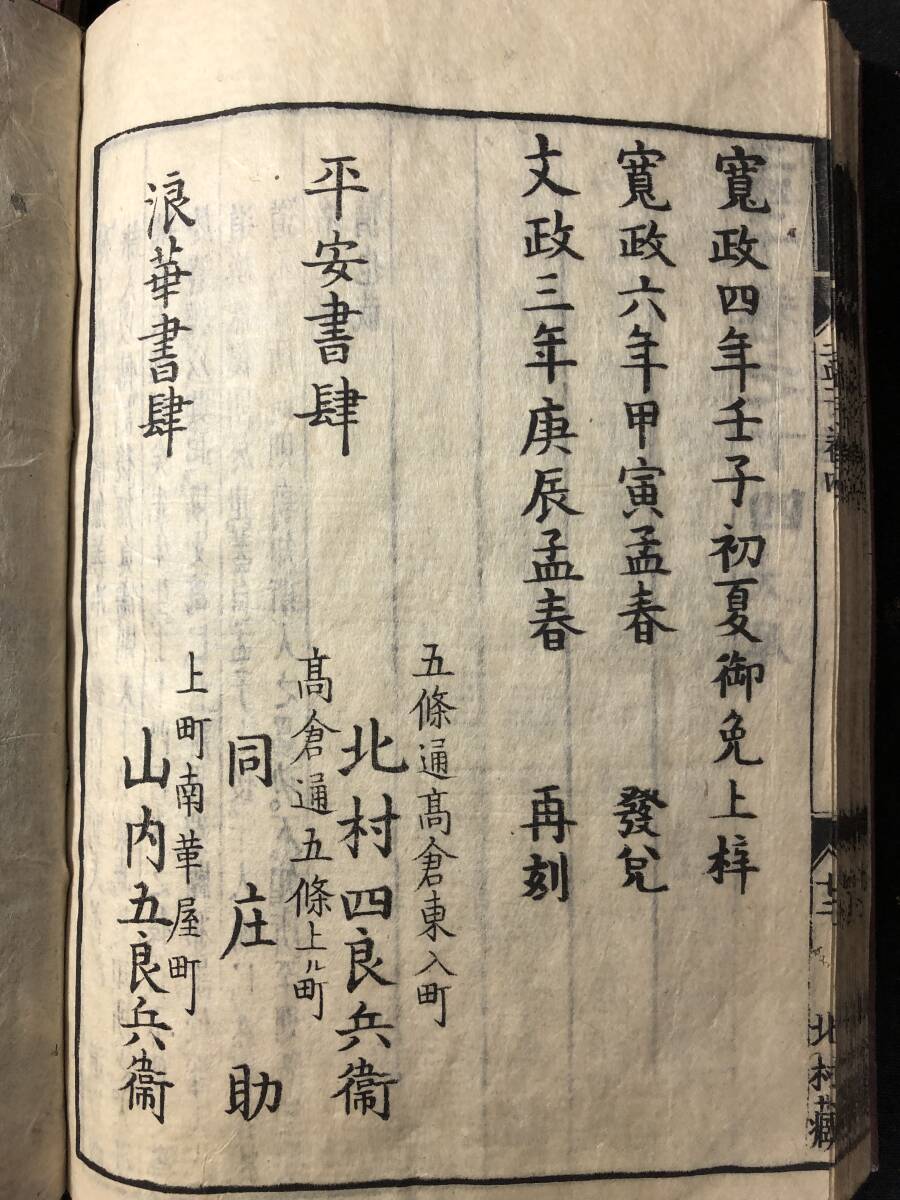 寬政四年壬子初夏御免上梓
寬政六年甲寅孟春　發兌
文政三年庚辰孟春　再刻
平安書肆
五條通髙倉東入町
北村四良兵衞
髙倉通五條上ル町
同　庄　助
浪華書肆
上町南革屋町
山内五良兵衞
北村藏